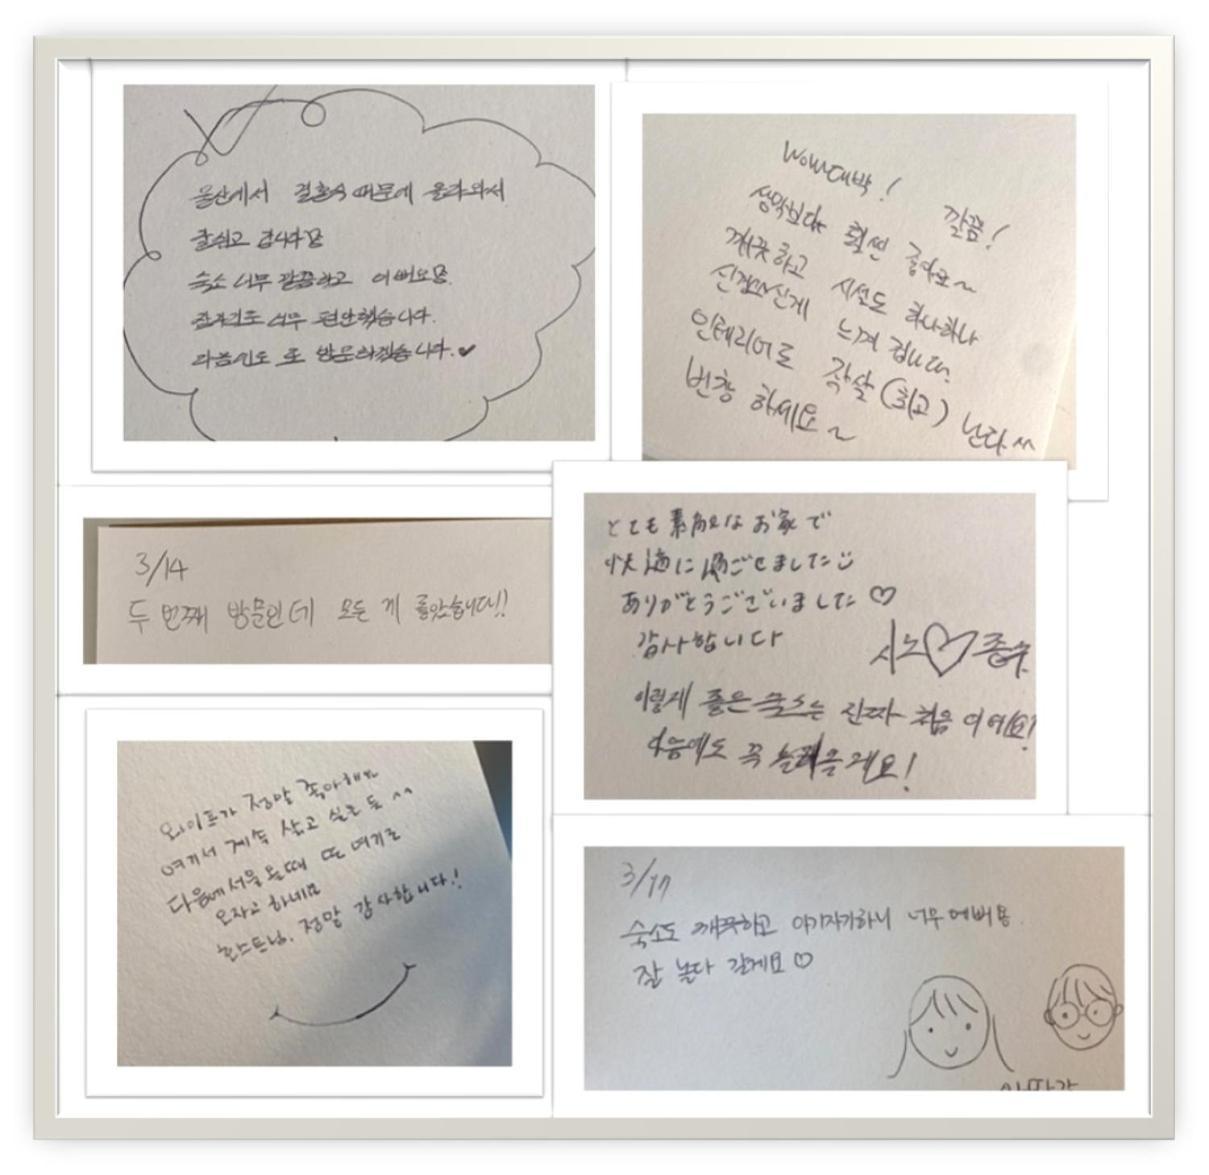 울산에서 결혼식 때문에 올라와서
잘쉬고 갑니다용
숙소 너무 깔끔하고 이뻐요용.
잠자리도 너무 편안했습니다.
다음번도 또 방문하겠습니다.✔
Wow대박! 깔끔!
생각보다 훨씬 좋아요~
깨끗하고 시설도 하나하나
신경쓰신게 느껴집니다.
인테리어로 작살(최고) 난다 ^^
번창 하세요~
3/14
두 번째 방문인데 모든 게 좋았습니다!!
とても素敵なお家で
快適に過ごせましたご
ありがとうございました♡
감사합니다
시노♡종수
이렇게 좋은 숙소는 진짜 처음이에요!
다음에도 꼭 놀러올게요!
와이프가 정말 좋아해요
여기서 계속 살고 싶은 듯 ^^
다음에 서울 올때 또 여기로
오자고 하네요
호스트님. 정말 감사합니다!!
3/17
숙소도 깨끗하고 아기자기하니 너무 예뻐용.
잘 놀다 갈게요♡